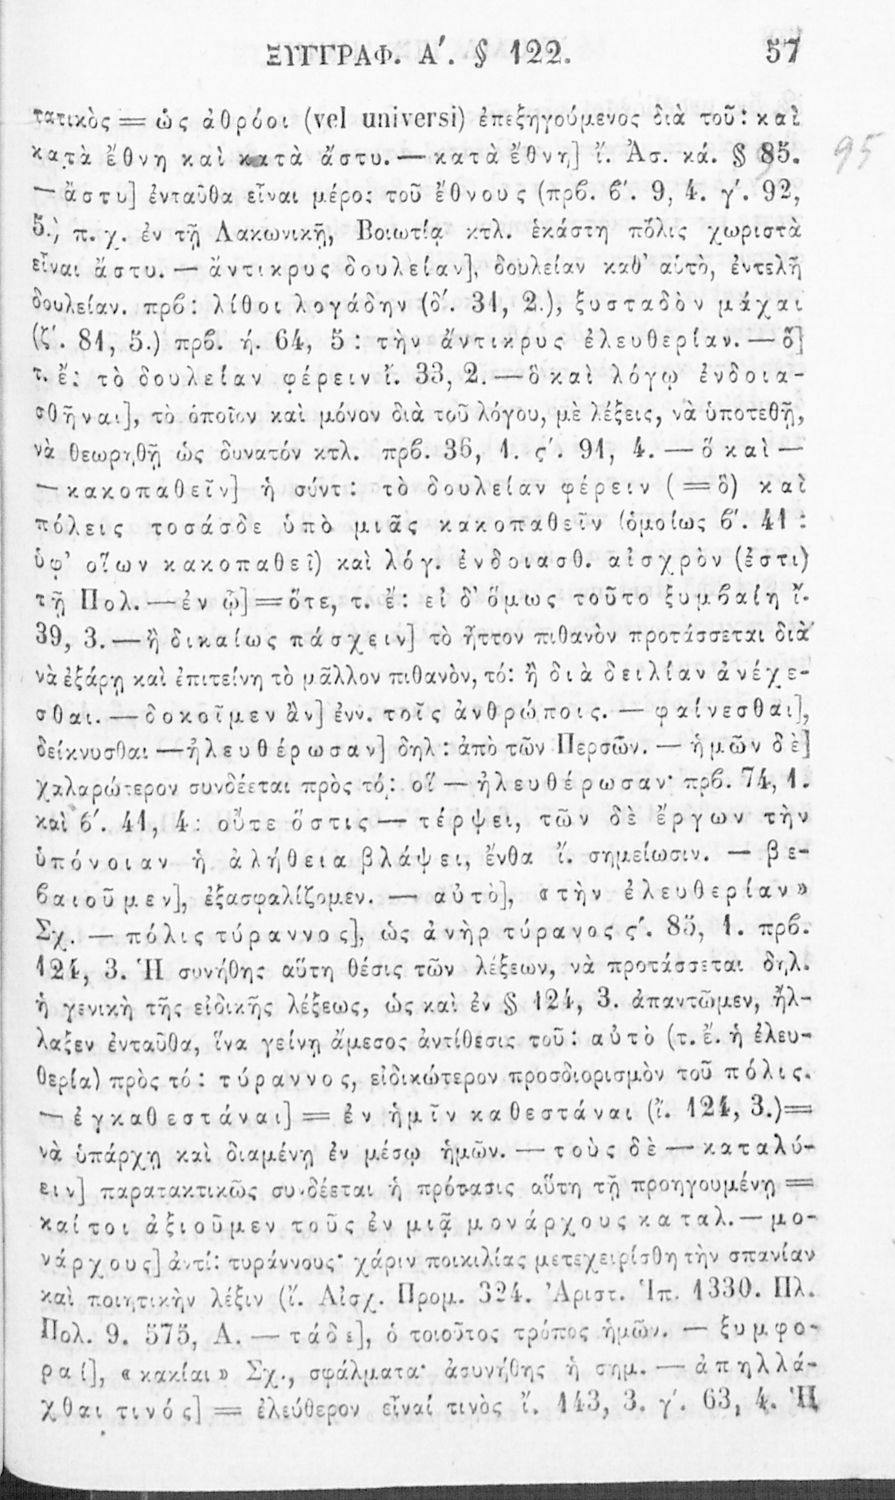 ΞΥΓΓΡΑΦ. Α΄. § 122. 57
τατικὸς = ὡς ἀθρόοι (vel universi) ἐπεξηγούμενος διὰ τοῦ: καὶ
κατὰ ἔθνη καὶ κατὰ ἄστυ. — κατὰ ἔθνη] ἴ. Ἀσ. κά. § 85. 95
— ἄστυ] ἐνταῦθα εἶναι μέρος τοῦ ἔθνους (πρβ. β΄. 9, 4. γ΄. 92,
5.) π. χ. ἐν τῇ Λακωνικῇ, Βοιωτίᾳ κτλ. ἑκάστη πόλις χωριστὰ
εἶναι ἄστυ. — ἄντικρυς δουλείαν], δουλείαν καθ’ αὑτὸ, ἐντελῆ
δουλείαν. πρβ: λίθοι λογάδην (δ΄. 31, 2.), ξυσταδὸν μάχαι
(ζ΄. 81, 5.) πρβ. ή. 64, 5: τὴν ἄντικρυς ἐλευθερίαν. — ὃ]
τ. ἔ: τὸ δουλείαν φέρειν ἴ. 33, 2. — ὃ καὶ λόγῳ ἐνδοια-
σθῆναι], τὸ ὁποῖον καὶ μόνον διὰ τοῦ λόγου, μὲ λέξεις, νὰ ὑποτεθῇ,
νὰ θεωρηθῇ ὡς δυνατόν κτλ. πρβ. 36, 1. ϛ΄. 91, 4. — ὅ καὶ —
— κακοπαθεῖν] ἡ σύντ: τὸ δουλείαν φέρειν (= ὃ) καὶ
πόλεις τοσάσδε ὑπὸ μιᾶς κακοπαθεῖν (ὁμοίως β΄. 41:
ὑφ’ οἵων κακοπαθεῖ) καὶ λόγ. ἐνδοιασθ. αἰσχρὸν (ἐστι)
τῇ Πολ. — ἐν ᾧ] = ὅτε, τ. ἔ: εἰ δ’ ὅμως τοῦτο ξυμβαίη ἴ.
39, 3. — ἢ δικαίως πάσχειν] τὸ ἧττον πιθανὸν προτάσσεται διὰ
νὰ ἐξάρῃ καὶ ἐπιτείνῃ τὸ μᾶλλον πιθανὸν, τό: ἢ διὰ δειλίαν ἀνέχε-
σθαι. — δοκοῖμεν ἂν] ἐνν. τοῖς ἀνθρώποις. — φαίνεσθαι],
δείκνυσθαι — ἠλευθέρωσαν] δηλ: ἀπὸ τῶν Περσῶν. — ἡμῶν δὲ]
χαλαρώτερον συνδέεται πρὸς τό: οἵ — ἠλευθέρωσαν· πρβ. 74, 1.
καὶ β΄. 41, 4: οὔτε ὅστις — τέρψει, τῶν δὲ ἔργων τὴν
ὑπόνοιαν ἡ ἀλήθεια βλάψει, ἔνθα ἴ. σημείωσιν. — βε-
βαιοῦμεν], ἐξασφαλίζομεν. — αὐτὸ], «τὴν ἐλευθερίαν»
Σχ. — πόλις τύραννος], ὡς ἀνὴρ τύρανος ϛ΄. 85, 1. πρβ.
124, 3. Ἡ συνήθης αὕτη θέσις τῶν λέξεων, νὰ προτάσσεται δηλ.
ἡ γενικὴ τῆς εἰδικῆς λέξεως, ὡς καὶ ἐν § 124, 3. ἀπαντῶμεν, ἤλ-
λαξεν ἐνταῦθα, ἵνα γείνῃ ἄμεσος ἀντίθεσις τοῦ: αὐτὸ (τ. ἔ. ἡ ἐλευ-
θερία) πρὸς τό: τύραννος, εἰδικώτερον προσδιορισμὸν τοῦ πόλις.
— ἐγκαθεστάναι] = ἐν ἡμῖν καθεστάναι (ἴ. 124, 3.) =
νὰ ὑπάρχῃ καὶ διαμένῃ ἐν μέσῳ ἡμῶν. — τοὺς δὲ — καταλύ-
ειν] παρατακτικῶς συνδέεται ἡ πρότασις αὕτη τῇ προηγουμένῃ =
καίτοι ἀξιοῦμεν τοῦς ἐν μιᾷ μονάρχους καταλ. — μο-
νάρχους] ἀντί: τυράννους· χάριν ποικιλίας μετεχειρίσθη τὴν σπανίαν
καὶ ποιητικὴν λέξιν (ἴ. Αἰσχ. Προμ. 324. Ἀριστ. Ἱπ. 1330. Πλ.
Πολ. 9. 575, Α. — τάδε], ὁ τοιοῦτος τρόπος ἡμῶν. — ξυμφο-
ραί], «κακίαι» Σχ., σφάλματα· ἀσυνήθης ἡ σημ. — ἀπηλλά-
χθαι τινός] = ἐλεύθερον εἶναί τινὸς ἴ. 143, 3. γ΄. 63, 4. Ἡ